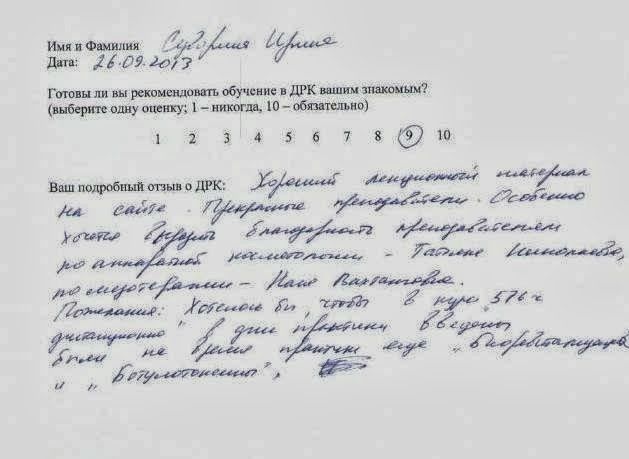 Имя и Фамилия Ирина
Дата: 26.09.2013
Готовы ли вы рекомендовать обучение в ДРК вашим знакомым?
(выберите одну оценку; 1 – никогда, 10 – обязательно)
1 2 3 4 5 6 7 8 9 10
Ваш подробный отзыв о ДРК: Хороший лекционный материал
на сайте. Прекрасные преподаватели. Особенно
хочется выразить благодарность преподавателям
по аппаратной косметологии – Татьяне Николаевне,
по мезотерапии – Вахтанговне.
Пожелания: Хотелось бы, чтобы в курс 576 ч
"дистанционно" в дни практики введены
были на время практики еще "Биоревитализация"
и "Ботулотоксины",